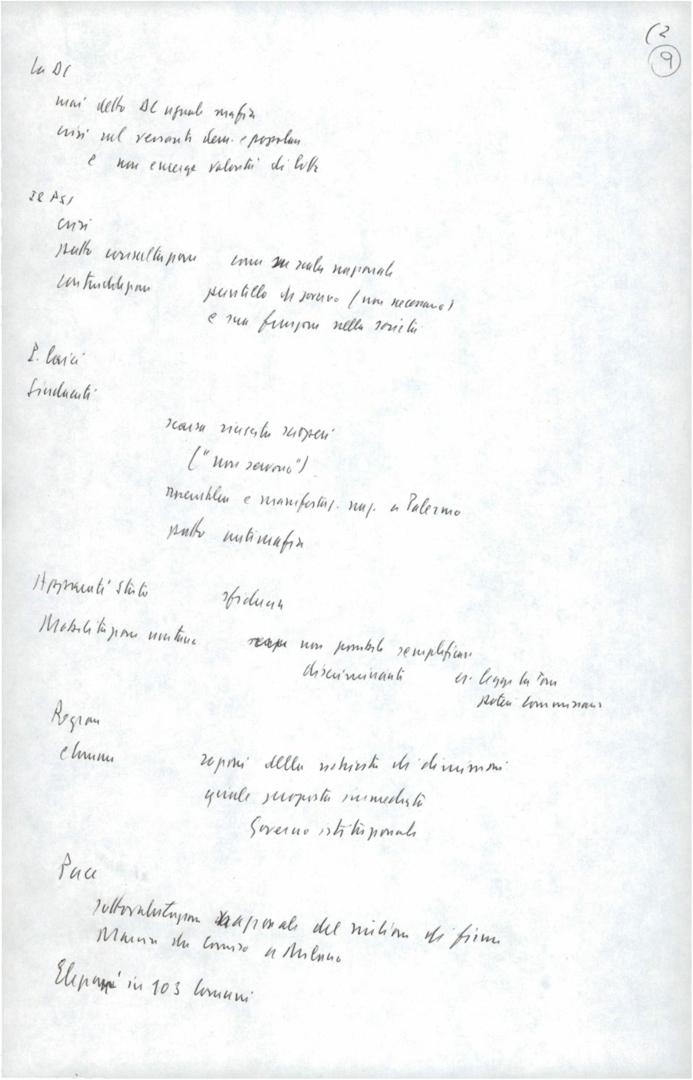 (2
9
La DC
mai detto DC uguale mafia
crisi sul versanti dem. e popolari
e non emerge volontà di lotta
Il PSI
crisi
patto consultazione come su scala nazionale
contraddizioni puntello di governo (non necessario)
e sua funzione nella società
P. laici
Sindacati
scarsa riuscita scioperi
("non servono")
Assemblea e manifestaz. naz. a Palermo
patto antimafia
Apparati Stato sfiducia
Mobilitazione unitaria non possibile semplificare
discriminanti es. legge La Torre
poteri commissario
Regione
e comune ragioni della richiesta di dimissioni
quale proposta immediata
Governo istituzionale
Pace
sottovalutazione nazionale del milione di firme
Marcia da Comiso a Milano
Elezioni in 103 comuni